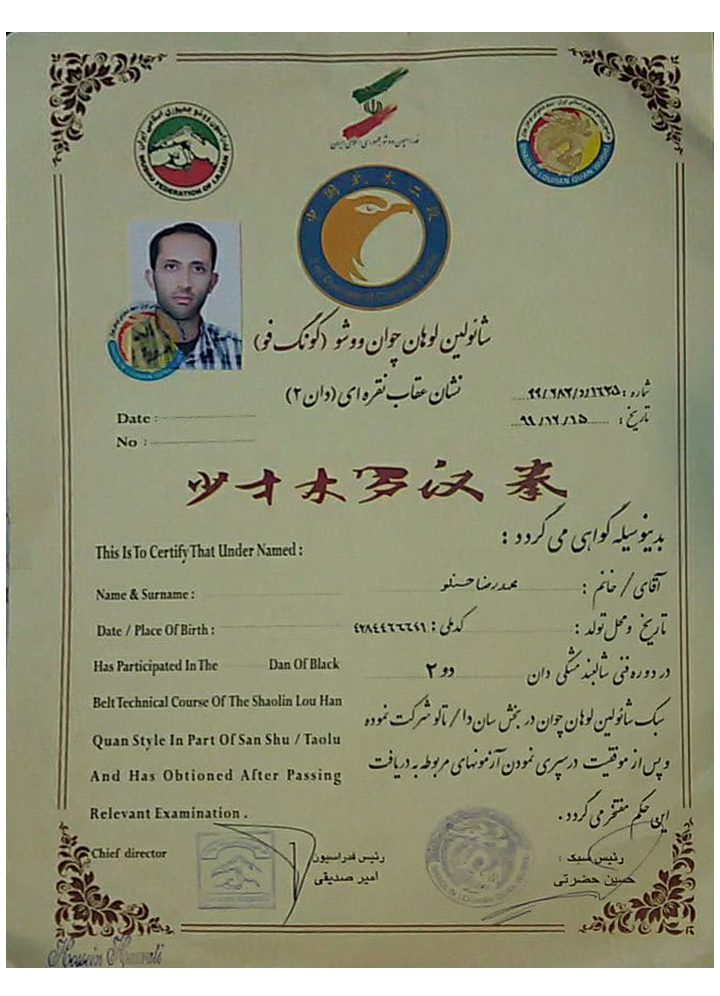 فدراسیون ووشو جمهوری اسلامی ایران
WUSHU FEDERATION OF I.R.IRAN
فدراسیون ووشو جمهوری اسلامی ایران
SHAOLIN LOUHAN QUAN WUSHU
中国武术二段
شائولین لوهان چوان ووشو (کونگ فو)
نشان عقاب نقره ای (دان ۲)
شماره :
تاریخ : ۹۹/۱۲/۱۵
Date :
No :
少林罗汉拳
بدینوسیله گواهی می گردد :
This Is To Certify That Under Named :
آقای / خانم : محمدرضا حسنلو
Name & Surname :
تاریخ و محل تولد : کدملی : ۴۲۸۴۴۶۶۲۴۱
Date / Place Of Birth :
در دوره فنی شالبند مشکی دان دو ۲
Has Participated In The Dan Of Black
سبک شائولین لوهان چوان در بخش سان دا / تالو شرکت نموده
Belt Technical Course Of The Shaolin Lou Han
Quan Style In Part Of San Shu / Taolu
و پس از موفقیت در سپری نمودن آزمونهای مربوطه به دریافت
And Has Obtioned After Passing
این حکم مفتخر می گردد .
Relevant Examination .
Chief director
رئیس فدراسیون
امیر صدیقی
رئیس سبک :
حسین حضرتی